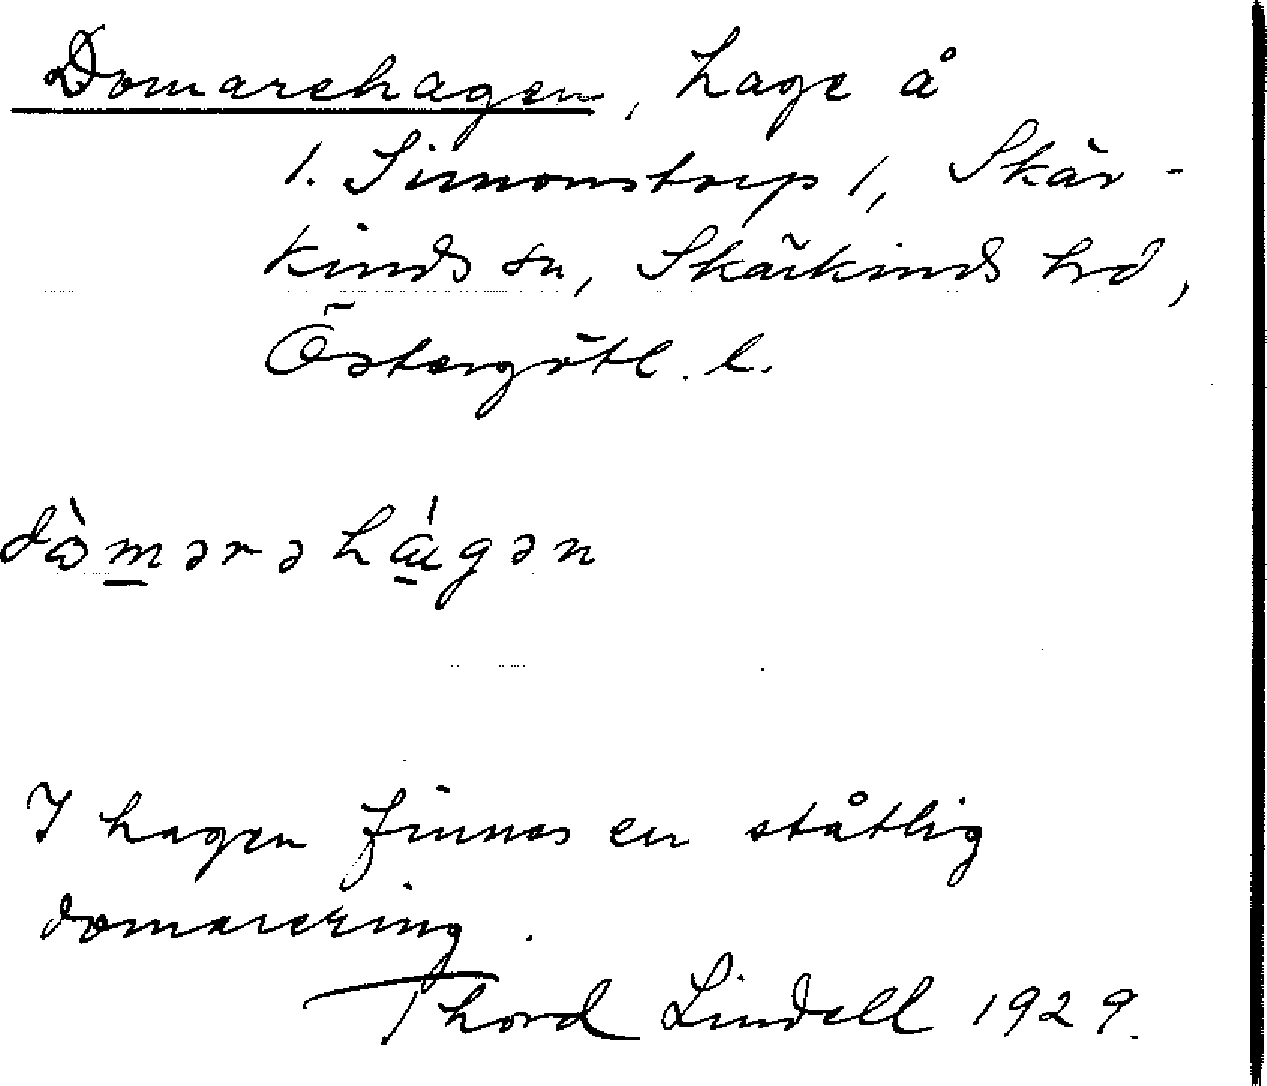 Domarehagen, hage å
1. Simonstorp 1, Skär-
kinds sn, Skärkinds hd,
Östergötl. l.
dòmərəhágən
I hagen finnes en ståtlig
domarering.
Thord Lindell 1929.